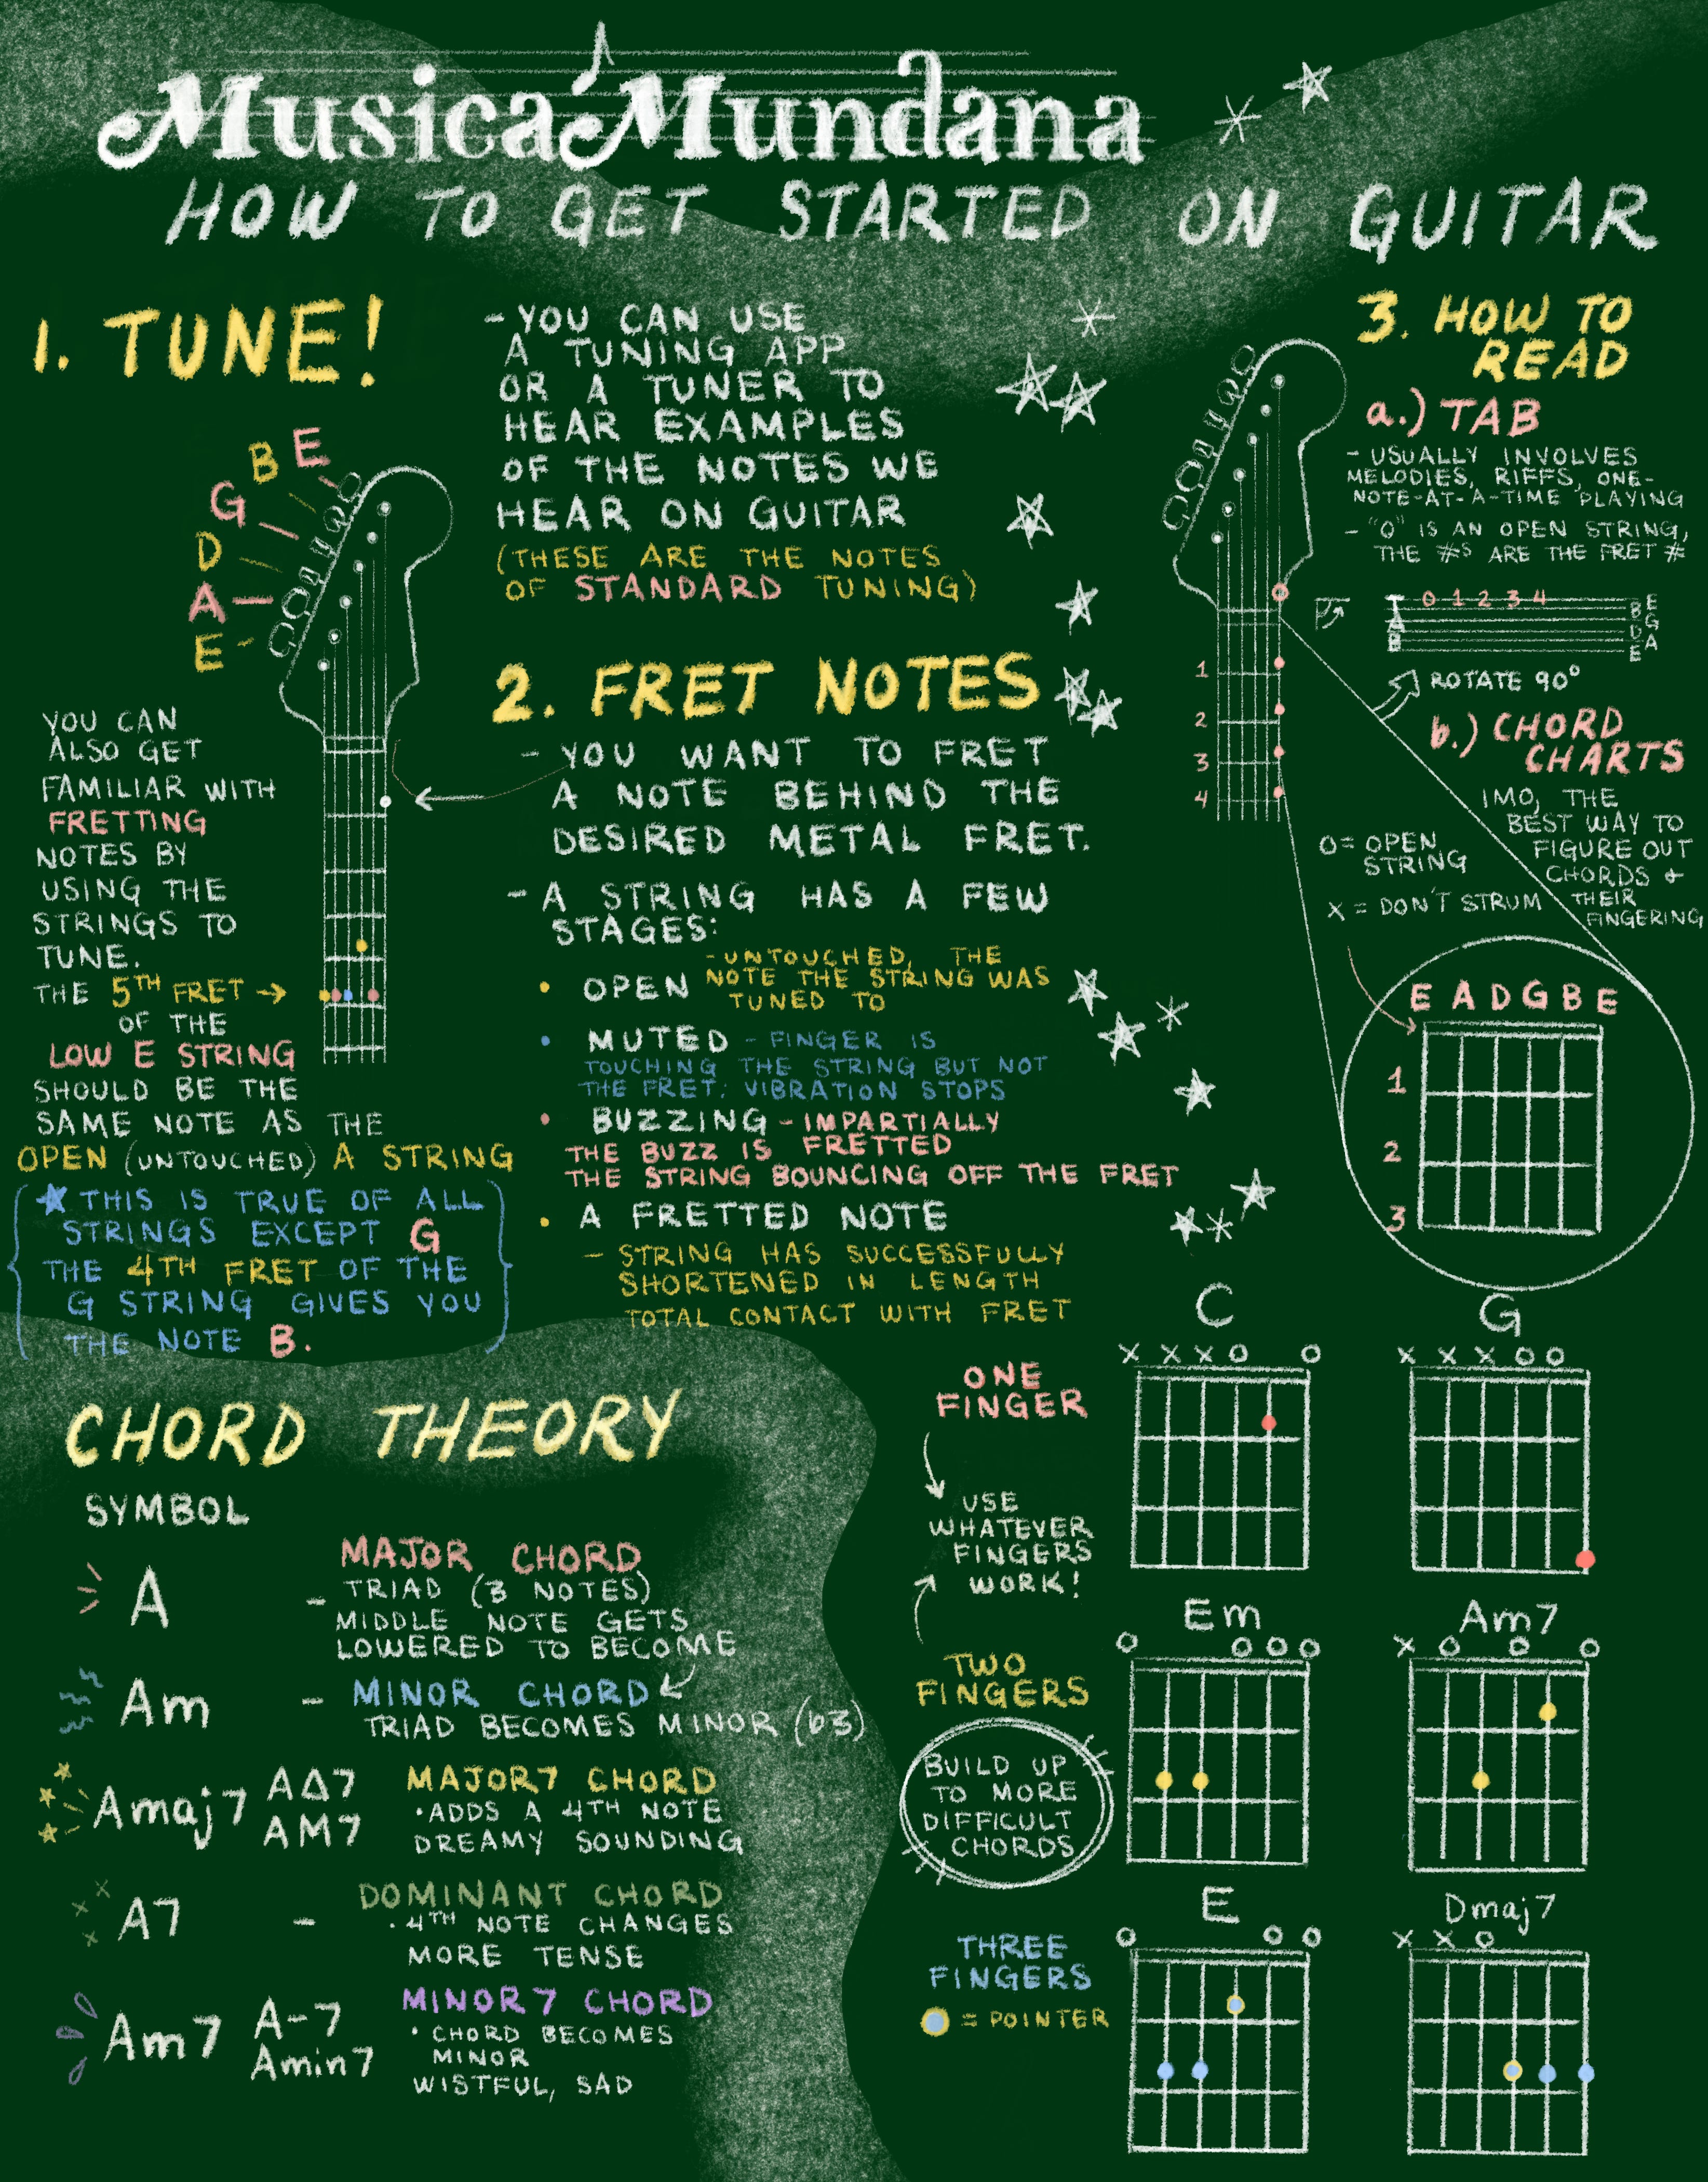 Musica Mundana
HOW TO GET STARTED ON GUITAR
1. TUNE!
E
B
G
D
A
E
YOU CAN
ALSO GET
FAMILIAR WITH
FRETTING
NOTES BY
USING THE
STRINGS TO
TUNE.
THE 5TH FRET →
OF THE
LOW E STRING
SHOULD BE THE
SAME NOTE AS THE
OPEN (UNTOUCHED) A STRING
★ THIS IS TRUE OF ALL
STRINGS EXCEPT G
THE 4TH FRET OF THE
G STRING GIVES YOU
THE NOTE B.
- YOU CAN USE
A TUNING APP
OR A TUNER TO
HEAR EXAMPLES
OF THE NOTES WE
HEAR ON GUITAR
(THESE ARE THE NOTES
OF STANDARD TUNING)
2. FRET NOTES
- YOU WANT TO FRET
A NOTE BEHIND THE
DESIRED METAL FRET.
- A STRING HAS A FEW
STAGES:
• OPEN - UNTOUCHED, THE
NOTE THE STRING WAS
TUNED TO
• MUTED - FINGER IS
TOUCHING THE STRING BUT NOT
THE FRET; VIBRATION STOPS
• BUZZING - IMPARTIALLY
THE BUZZ IS FRETTED
THE STRING BOUNCING OFF THE FRET
• A FRETTED NOTE
- STRING HAS SUCCESSFULLY
SHORTENED IN LENGTH
TOTAL CONTACT WITH FRET
3. HOW TO
READ
a.) TAB
- USUALLY INVOLVES
MELODIES, RIFFS, ONE-
NOTE-AT-A-TIME PLAYING
- "O" IS AN OPEN STRING,
THE #S ARE THE FRET #
1
2
3
4
T
A
B
0 1 2 3 4
E
B
G
D
A
E
ROTATE 90°
b.) CHORD
CHARTS
IMO, THE
BEST WAY TO
FIGURE OUT
CHORDS +
THEIR
FINGERING
O = OPEN
STRING
X = DON'T STRUM
E A D G B E
1
2
3
CHORD THEORY
SYMBOL
A
MAJOR CHORD
- TRIAD (3 NOTES)
MIDDLE NOTE GETS
LOWERED TO BECOME
Am
- MINOR CHORD
TRIAD BECOMES MINOR (b3)
Amaj7 AΔ7
AM7
MAJOR7 CHORD
• ADDS A 4TH NOTE
DREAMY SOUNDING
A7 -
DOMINANT CHORD
• 4TH NOTE CHANGES
MORE TENSE
Am7 A-7
Amin7
MINOR7 CHORD
• CHORD BECOMES
MINOR
WISTFUL, SAD
ONE
FINGER
USE
WHATEVER
FINGERS
WORK!
TWO
FINGERS
BUILD UP
TO MORE
DIFFICULT
CHORDS
THREE
FINGERS
= POINTER
C
X X X O O
G
X X X O O
Em
O O O O
Am7
X O O O
E
O O O
Dmaj7
X X O